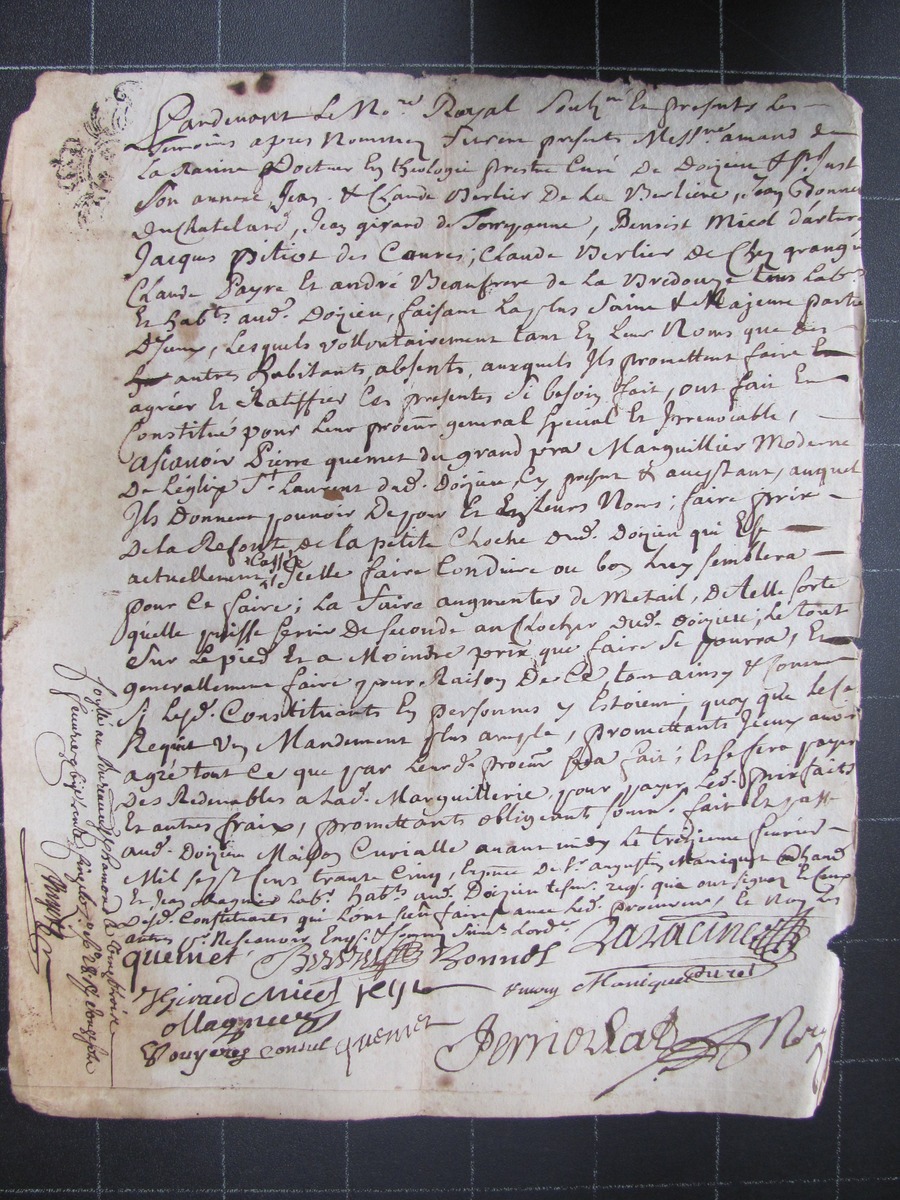 Pardevant Le No.re Royal Soub.né Et presents Les
Temoins apres Nommez Furent presents Mess.re amand de
La Racine Docteur En theologie prestre Curé De Doizieu & St. Just
Son annexe, Jean & Claude Berlier De La Berliere, Jean Bonnes
Du Chatelard, Jean girard de Benoist Micol
Jacques pitiot des Caures; Claude Berlier De Chez grange
Claude Payre Et andré Beaufrere de la Bredouze tous Lab.rs
Et hab.ts aud. Doizieu, faisant La plus Saine & Majeure partie
D'Jceux, Lesquels vollontairement tant En Leur Noms que des
autres habitants absents, auxquels Ils promettent faire
agréer Et Ratiffier Ces presentes Si besoin fait, ont fait Et
Constitué pour Leur procur general special Et Irrevocable,
ascavoir Pierre quemet du grand pra Marguillier Moderne
De L'église St. Laurent dud. Doizieu, Cy present & acceptant, auquel
Ils Donnent pouvoir De pour Et En Leurs Noms; faire prix
De la Refonte de la petite Cloche dud. Doizieu qui Est
actuellement Cassée, Icelle faire Conduire ou bon Luy semblera
pour Ce faire; La Faire augmenter de Metail, de telle sorte
qu'elle puisse servir De seconde au Clocher dud. Doizieu; Le tout
Sur Le pied Et a Moindre prix que faire Se pourra, Et
generallement faire pour Raison De Ce, tout ainsy & Comme
Si Lesd. Constituants En personnes y Estoient; quoy que Le Cas
Requit un Mandement plus ample, promettants Iceux avoir
agré tout Ce que par Leurd. procur Sera fait; Et Se fera payer
Des Redevables a Lad. Marguillerie, pour payer Led. prixfaits
Et autres fraix, promettants obligeants Soum. fait Et passé
aud. Doizieu Maison Curialle avant midy Le treizieme fevrier
Mil sept Cens trante Cinq, En presence de Sr. augustin Maniquet Marchand
Et Jean Magnier Lab.r hab.ts aud. Doizieu tesm. req. qui ont signez Et Ceux
Desd. Constituants qui Sont Sceu faire avec Led. procureur, Et Non Les
autres pr. ne Scavoir Enq. & Somm. Suiv. Lord.
quemet Bonnes Laracine
JGirard Micol Maniquet
Magnier
Vouyeres Consul quemet